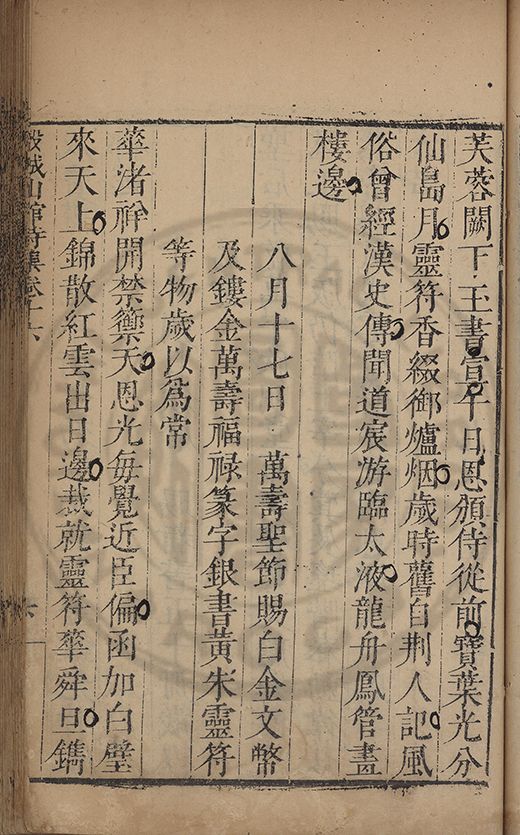 芙蓉闕下玉書宣午日恩頒侍從前寶葉光分
仙島月靈符香綴御爐烟歲時舊自荆人記風
俗曾經漢史傳聞道宸游臨太液龍舟鳳管畫
樓邊
八月十七日 萬壽聖節賜白金文幣
及鏤金萬壽福祿篆字銀書黃朱靈符
等物歲以為常
華渚祥開禁籞天恩光每覺近臣偏函加白璧
來天上錦散紅雲出日邊裁就靈符華舜旦鐫
穀城山館詩集卷十六